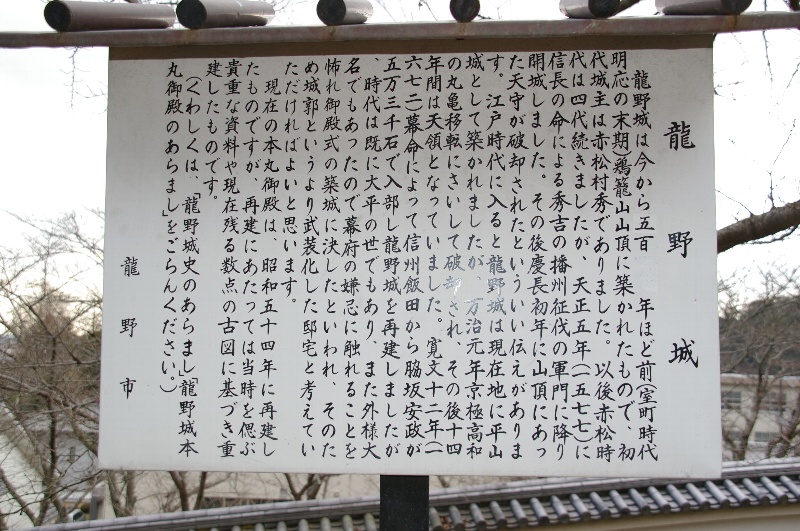 龍野城
龍野城は今から五百 年ほど前(室町時代
明応の末期鶏籠山山頂に築かれたもので、初
代城主は赤松村秀でありました。以後赤松時
代は四代続きましたが、天正五年(一五七七)に
信長の命による秀吉の播州征伐の軍門に降り
開城しました。その後慶長初年に山頂にあっ
た天守が破却されたといういい伝えがありま
す。江戸時代に入ると龍野城は現在地に平山
城として築かれましたが、万治元年京極高和
の丸亀移転にさいして破却され、その後十四
年間は天領となっていました。寛文十二年(一
六七二幕命によって信州飯田から脇坂安政が
五万三千石で入部し龍野城を再建しましたが
、時代は既に大平の世でもあり、また外様大
名でもあったので幕府の嫌忌に触れることを
怖れ御殿式の築城に決したといわれ、そのた
め城郭というより武装化した邸宅と考えてい
ただければよいと思います。
現在の本丸御殿は、昭和五十四年に再建し
たものですが、再建にあたっては当時を偲ぶ
貴重な資料や現在残る数点の古図に基づき重
建したものです。
(くわしくは、「龍野城史のあらまし「龍野城本
丸御殿のあらまし」をごらんください。)
龍野市